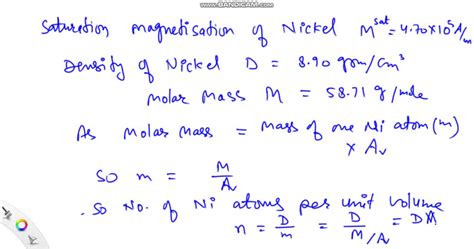 WWW.BANDICAM.COM
Saturation magnetisation of Nickel M^sat = 4.70×10^5 A/m
Density of Nickel D = 8.90 gm/cm^3
Molar Mass M = 58.71 g/mole
As Molar Mass = Mass of one Ni atom (m)
× A_v
So m = M/A_v
So No. of Ni atoms per unit volume
n = D/m = D/M/A_v = DA